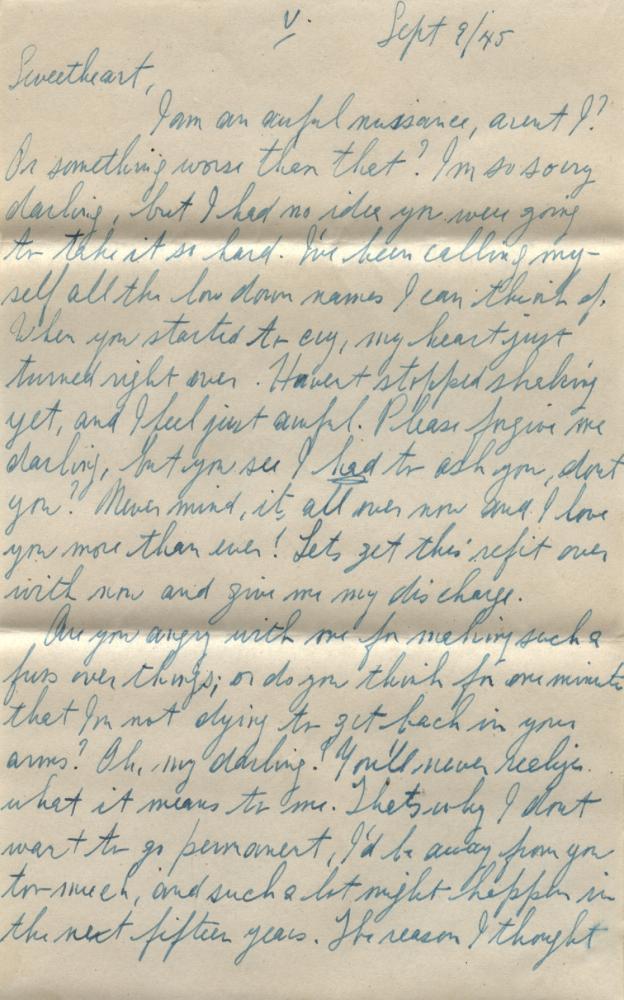 V.
Sept 9/45
Sweetheart,
I am an awful nussance, arent I?
Or something worse than that? I'm so sorry
darling, but I had no idea you were going
to take it so hard. I've been calling my-
self all the low down names I can think of.
When you started to cry, my heart just
turned right over. Havent stopped shaking
yet, and I feel just awful. Please forgive me
darling, but you see I had to ask you, dont
you? Never mind, its all over now and I love
you more than ever! Lets get this refit over
with now and give me my discharge.
Are you angry with me for making such a
fuss over things; or do you think for one minute
that I'm not dying to get back in your
arms? Oh, my darling! You'll never realize
what it means to me. Thats why I dont
want to go permanent, I'd be away from you
too much, and such a lot might happen in
the next fifteen years. The reason I thought